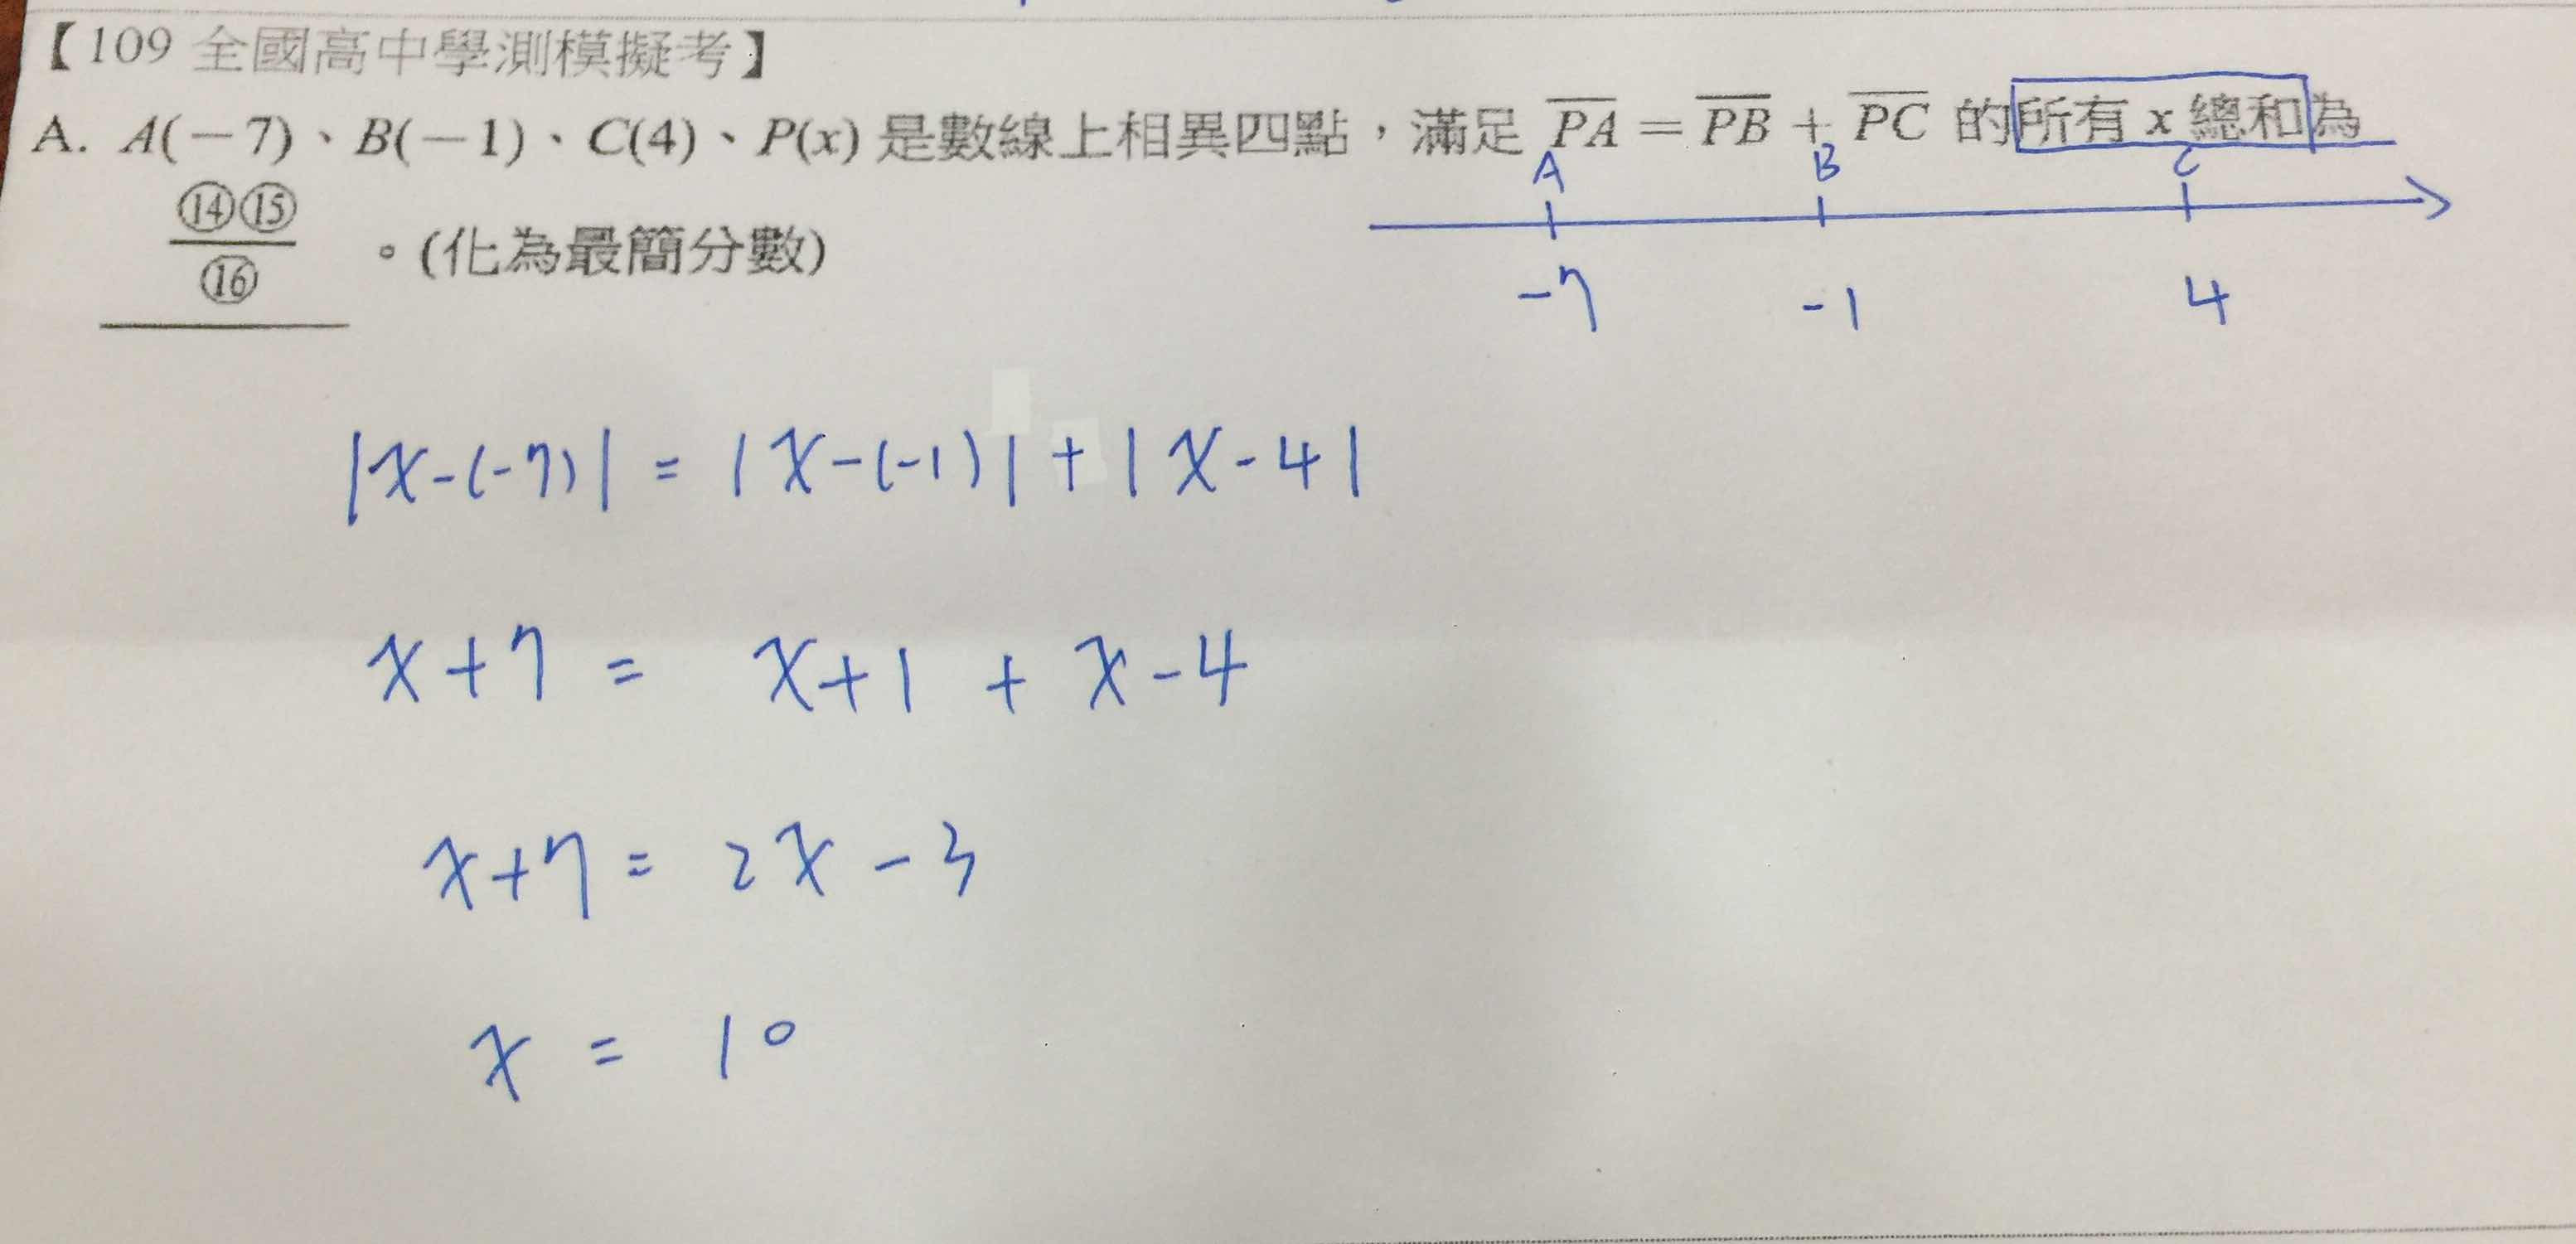 【109 全國高中學測模擬考】
A. A(-7)、B(-1)、C(4)、P(x) 是數線上相異四點,滿足 PA = PB + PC 的所有 x 總和為
⑭⑮
⑯
。(化為最簡分數)
A B C
-7 -1 4
|x-(-7)| = |x-(-1)| + |x-4|
x+7 = x+1 + x-4
x+7 = 2x-3
x = 10